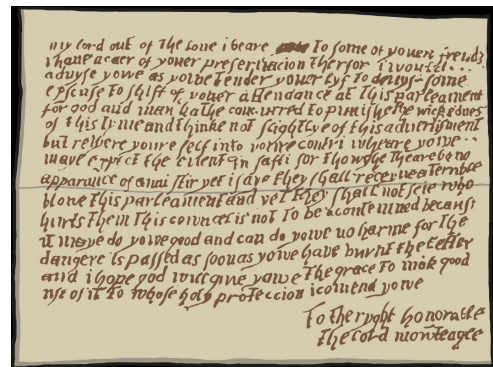 my lord out of the loue i beare to some of youer frends
i haue a caer of youer preseruacion therfor i would
aduyse yowe as yowe tender youer lyf to deuys some
excuse to shift of youer attendance at this parleament
for god and man hathe concurred to punishe the wickednes
of this tyme and thinke not slightlye of this aduertisment
but retyere youre self into youre contri wheare yowe
maye expect the euent in safti for thowghe theare be no
apparance of anni stir yet i saye they shall receyue a terrible
blowe this parleament and yet they shall not seie who
hurts them this councel is not to be acontemned because
it maye do yowe good and can do yowe no harme for the
dangere is passed as soon as yowe haue burnt the letter
and i hope god will giue yowe the grace to mak good
use of it to whose holy proteccion i comend yowe
To the ryght honorable
the lord monteagle